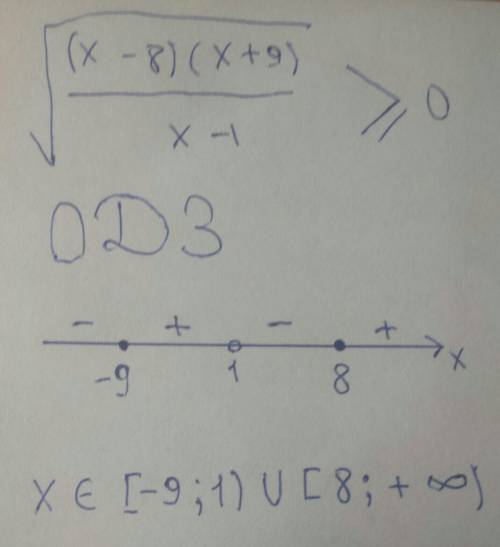 √((x - 8)(x + 9) / (x - 1)) ⩾ 0
ОДЗ
- + - +
-9 1 8 x
x ∈ [-9; 1) ∪ [8; + ∞)